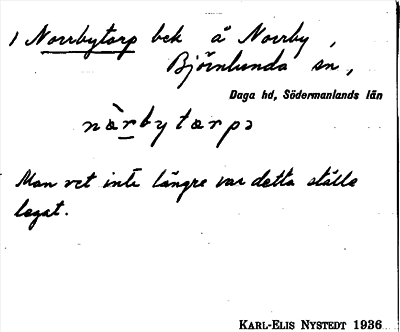 1 Norrbytorp bek å Norrby,
Björnlunda sn,
Daga hd, Södermanlands län
nàrbytærpə
Man vet inte längre var detta ställe
legat.
KARL-ELIS NYSTEDT 1936